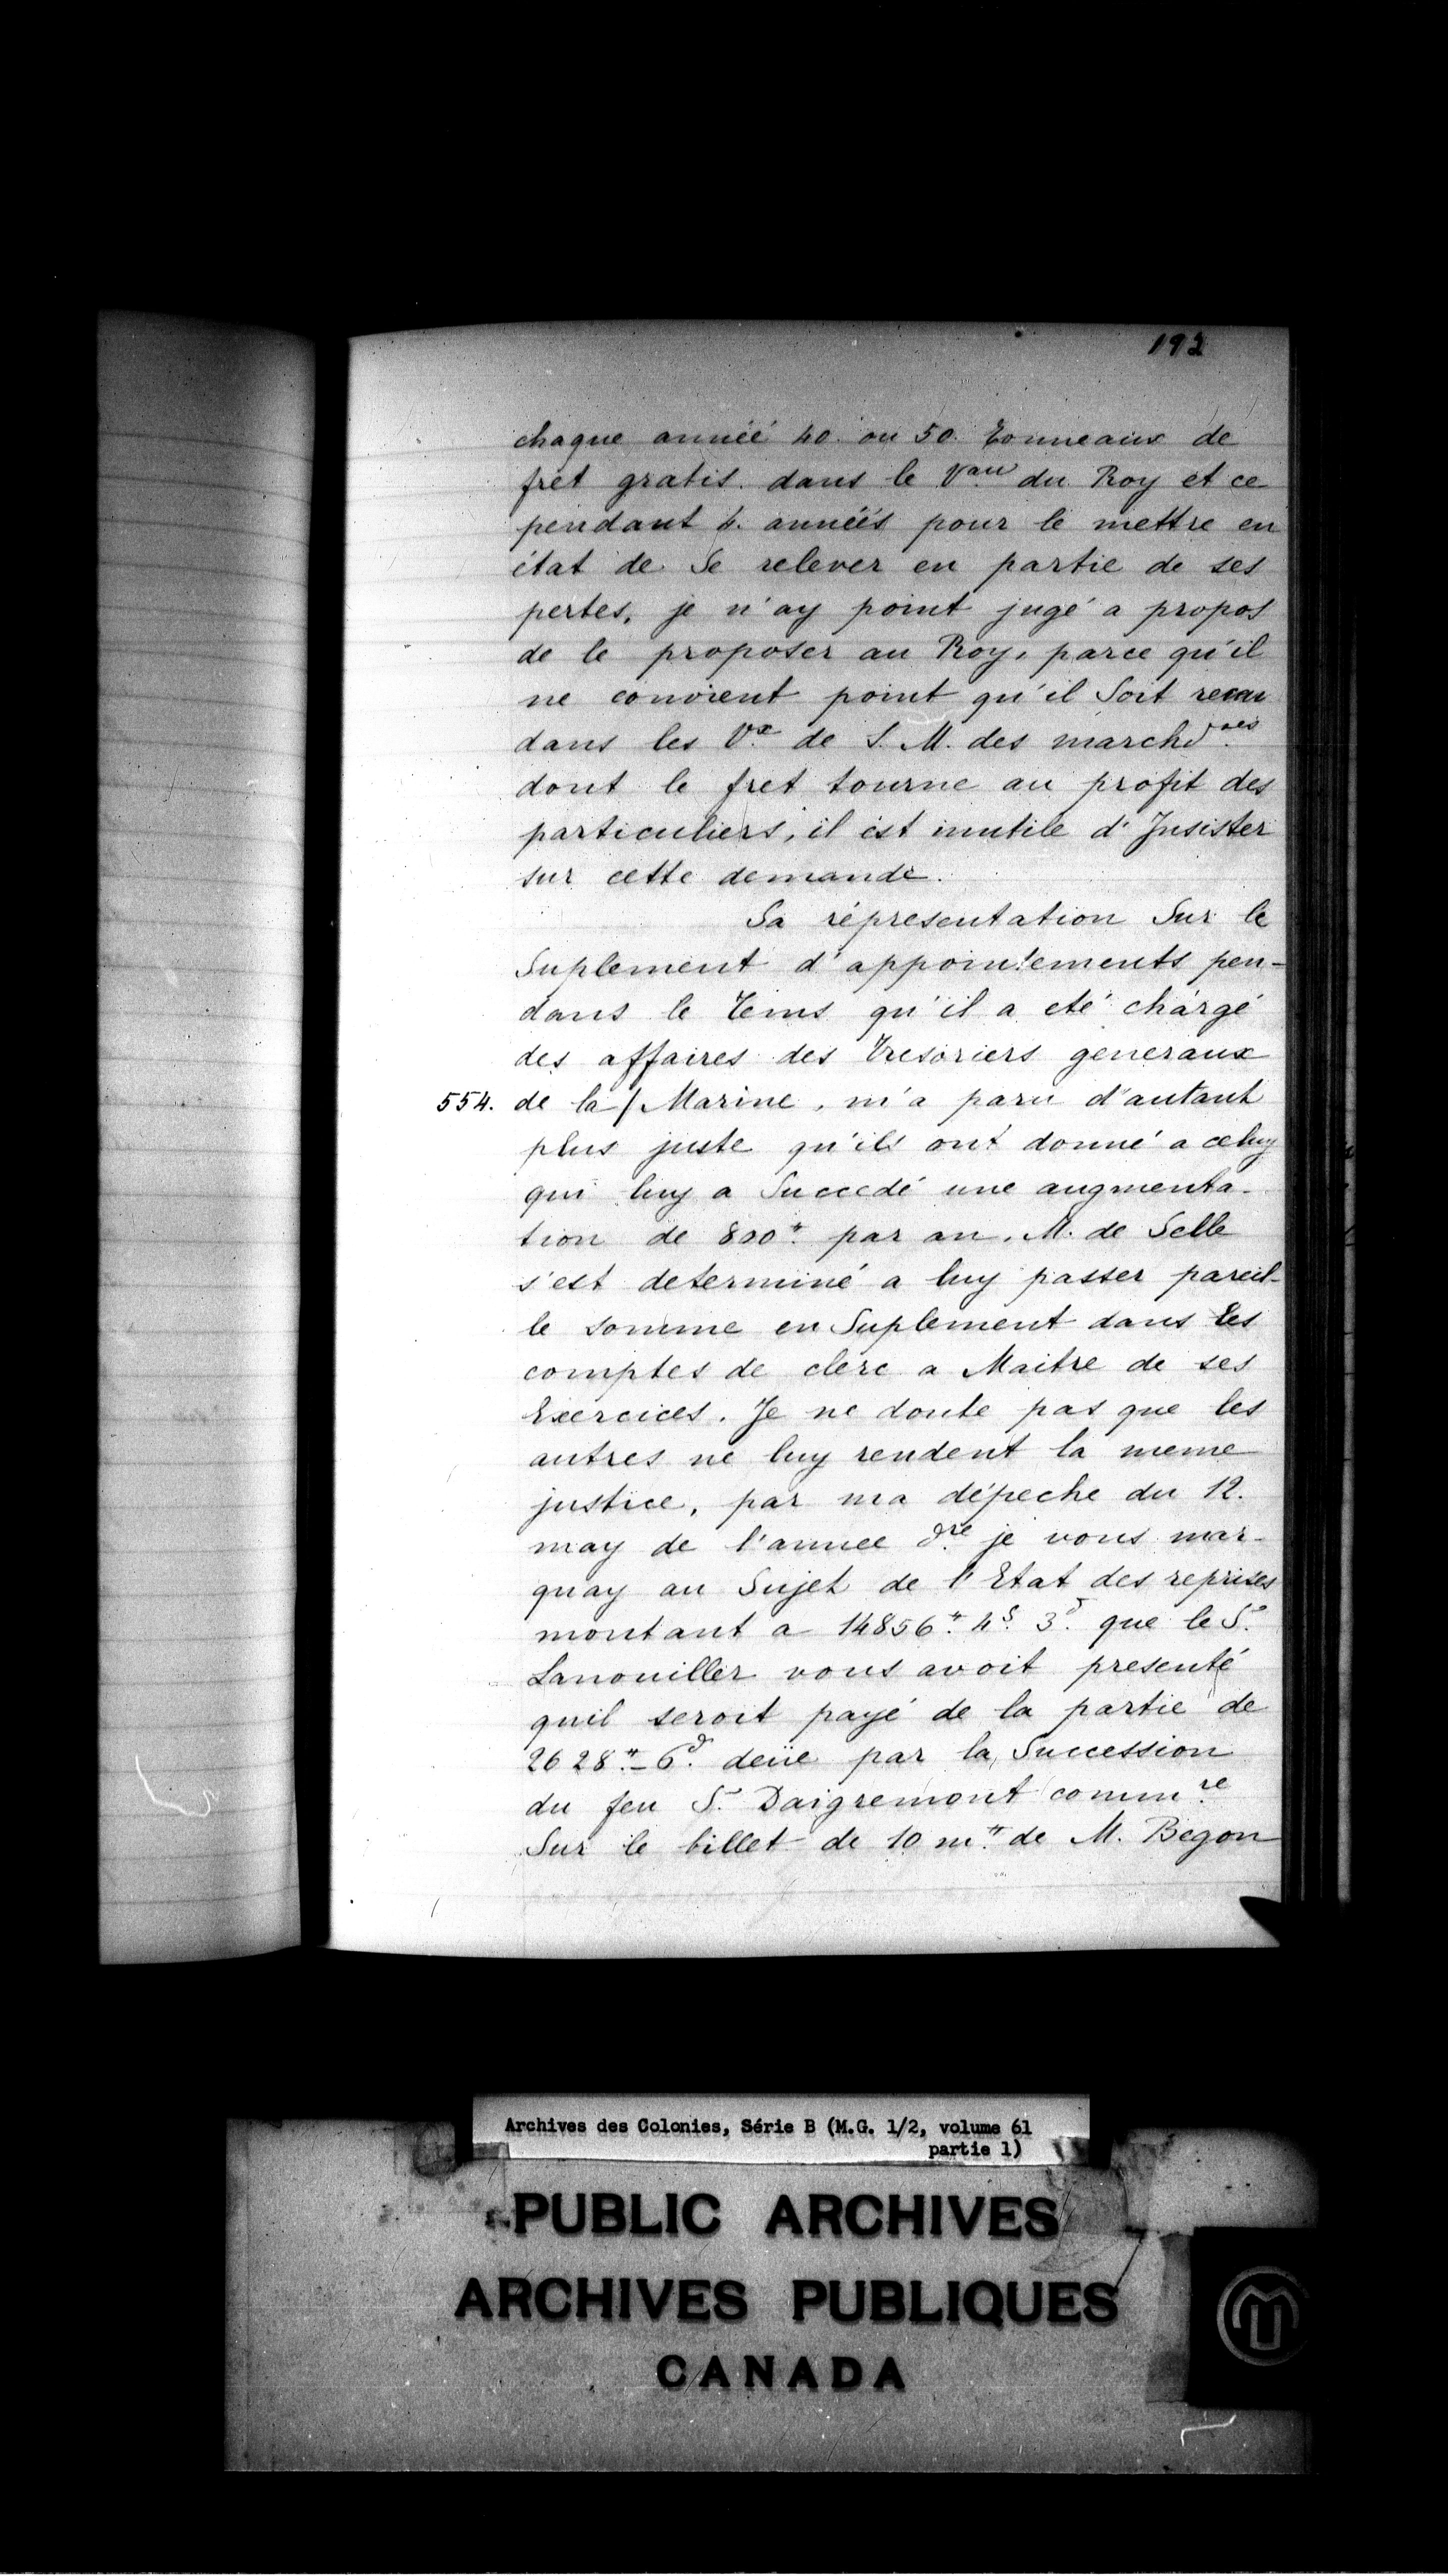 192
chaque année 40. ou 50. tonneaux de
fret gratis. dans le V.au du Roy et ce
pendant 4. années pour le mettre en
état de Se relever en partie de ses
pertes, je n'ay point jugé a propos
de le proposer au Roy, parce qu'il
ne convient point qu'il Soit
dans les V.x de S. M. des marchd.ses
dont le fret tourne au profit des
particuliers, il est inutile d'Insister
sur cette demande.
Sa répresentation Sur le
Suplement d'appointements pen-
dans le tems qu'il a eté chargé
des affaires des tresoriers generaux
554. de la / Marine, m'a paru d'autant
plus juste qu'ils ont donné a celuy
qui luy a Succedé une augmenta-
tion de 800.# par an. M. de Selle
s'est determiné a luy passer pareil-
le somme en Suplement dans les
comptes de clerc a Maitre de ses
Exercices. Je ne doute pas que les
autres ne luy rendent la meme
justice, par ma dépeche du 12.
may de l'annee d.re je vous mar-
quay au Sujet de l'Etat des reprises
montant a 14856.# 4.S 3.d que le S.r
Lanouiller vous avoit presenté
quil seroit payé de la partie de
2628.# _ 6.d deüe par la Succession
du feu S.r Daigremont comm.re
Sur le billet de 10 m.# de M. Begon
Archives des Colonies, Série B (M.G. 1/2, volume 61
partie 1)
PUBLIC ARCHIVES
ARCHIVES PUBLIQUES
CANADA